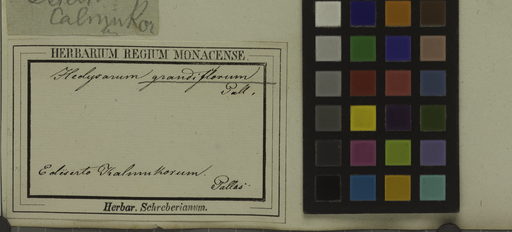 Calmukor
HERBARIUM REGIUM MONACENSE.
Hedysarum grandiflorum
Pall.
E deserto Kalmukorum.
Pallas.
Herbar. Schreberianum.